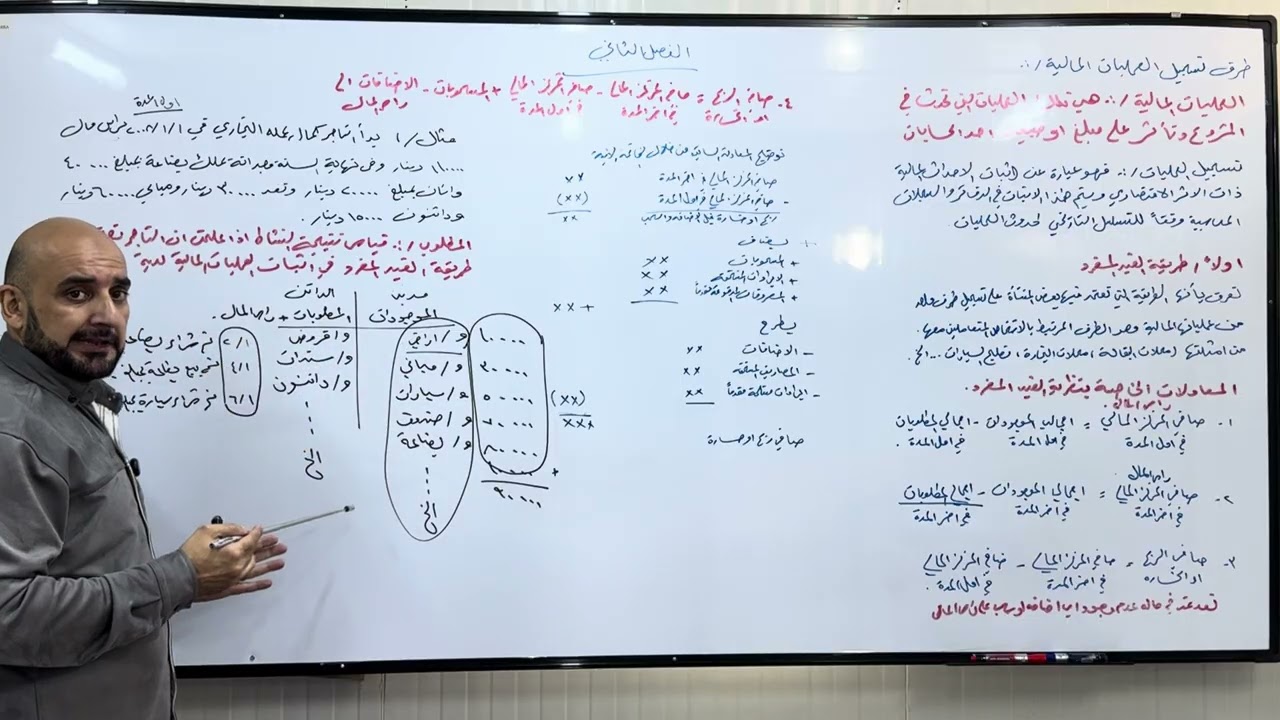 الفصل الثاني
طرق تسجيل العمليات المالية /:.
العمليات المالية /:. هي تلك العمليات التي تحدث في
المشروع وتأثر على مبلغ او احد الحسابات
تسجيل العمليات /:. فهو عبارة عن اثبات الاحداث المالية
ذات الاثر الاقتصادي ويتم هذا الاثبات في الدفاتر والسجلات
المحاسبية وفقاً للتسلسل التاريخي لحدوث العمليات
اولاً / طريقة القيد المفرد
تعرف بأنها الطريقة التي تعتمد فيها بعض المنشأة على تسجيل طرف واحد
من عملياتها المالية وهو الطرف المرتبط بالاشخاص المتعاملين معها.
من امثلتها (محلات البقالة، محلات التجارة، تصليح السيارات ... الخ.
المعادلات الخاصة بنظرية القيد المفرد.
راس المال
١- صافي المركز المالي = اجمالي الموجودات - اجمالي المطلوبات
في اول المدة في اول المدة في اول المدة .
راس المال
٢- صافي المركز المالي = اجمالي الموجودات - اجمالي المطلوبات
في اخر المدة في اخر المدة في اخر المدة
٣- صافي الربح = صافي المركز المالي - صافي المركز المالي
او الخسارة في اخر المدة في اول المدة .
تعتمد في حالة عدم وجود اي اضافة او سحب على راس المال
٤. صافي الربح = صافي المركز المالي - صافي المركز المالي + المسحوبات - الاضافات الى
او الخسارة في اخر المدة في اول المدة راس المال
توضيح المعادلة السابقة من خلال القائمة الاتية
صافي المركز المالي في اخر المدة ××
- صافي المركز المالي في اول المدة (××)
ربح او خسارة قبل الاضافة والسحب ××
+ يضاف
+ المسحوبات ××
+ الايرادات المستحقة ××
+ المصروفات المدفوعة مقدماً ××
×× +
يطرح
- الاضافات ××
- المصاريف المستحقة ××
- ايرادات مستلمة مقدماً ××
(××)
×××
صافي ربح او خسارة
اول المدة
مثال / ١ بدأ التاجر كمال عمله التجاري في ١/١/ براس مال
دينار وفي نهاية السنة وجد انه يملك بضاعة بمبلغ ٤٠٠٠٠
واثاث بمبلغ ٢٠٠٠٠ دينار ونقد ٣٠٠٠٠ دينار ومباني ٦٠٠٠٠ دينار
ودائنون ١٥٠٠٠ دينار .
المطلوب /:. قياس نتيجة النشاط اذا علمت ان التاجر
طريقة القيد المفرد في اثبات العمليات المالية لديه
مدين الدائن
الموجودات المطلوبات + راس المال .
١٠٠٠٠ د / اراضي
٣٠٠٠٠ د / مباني
٥٠٠٠٠ د / سيارات
د / صندوق
د / بضاعة
الخ
+
٩٠٠٠٠
د / قروض
د / سندات
د / دائنون
الخ
٢/١ تم شراء بضاعة
٤/١ تم بيع بضاعة
٦/١ تم شراء سيارة